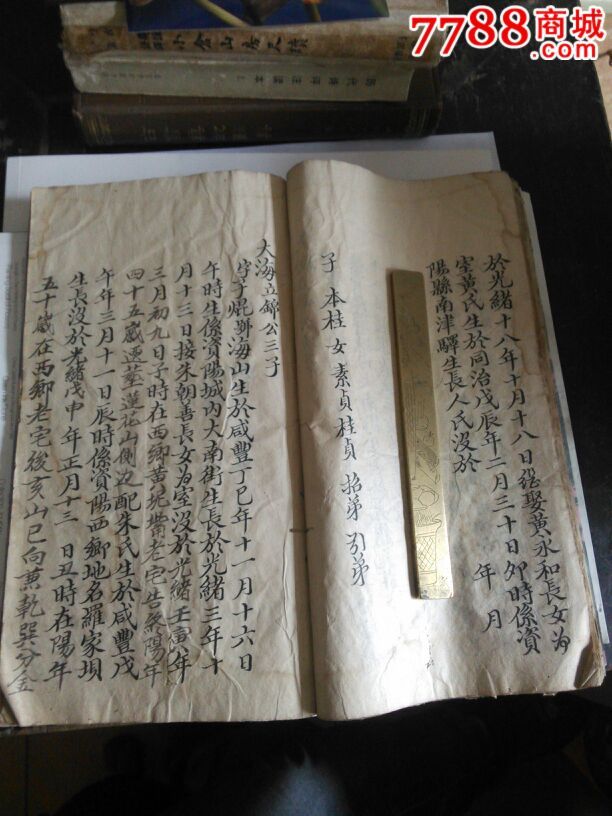 7788商城
小倉山房尺牘
歷代詩評注讀本上
於光緒十八年十月十八日經娶黃永和長女為
室黃氏生於同治戊辰年二月三十日卯時係資
陽縣南津驛生長人氏沒於 年 月
子 本桂 女 素貞 桂貞 招弟 引弟
大海立錦公三子
字子焜號海山生於咸豐丁巳年十一月十六日
午時生係資陽城內大南街生長於光緒三年十
月十三日接朱朝善長女為室沒於光緒壬寅年
三月初九日子時在西鄉黃坭灣老宅告終陽年
四十五歲遷葬蓮花山側邊配朱氏生於咸豐戊
午年三月十一日辰時係資陽西鄉地名羅家垻
生長沒於光緒戊申年正月十三日丑時在陽年
五十歲在西鄉老宅後亥山巳向兼乾巽分金